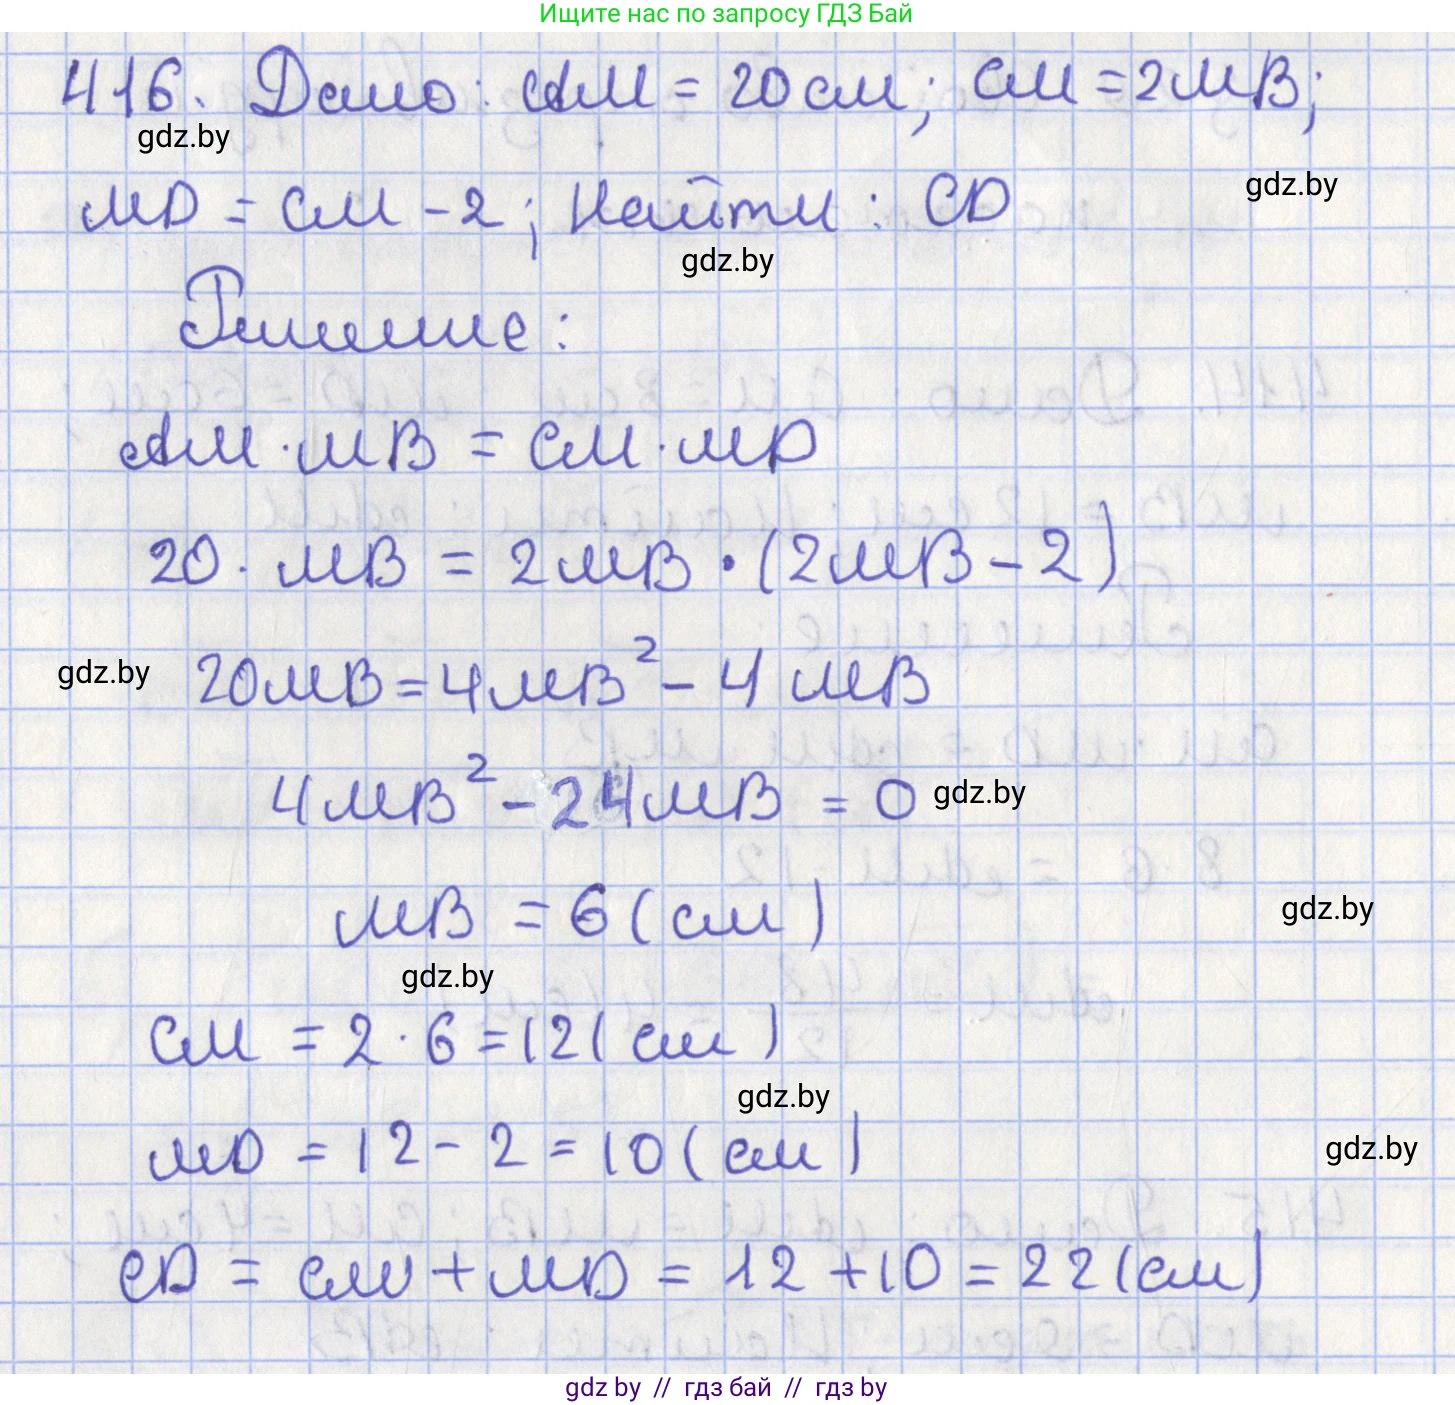 Ищите нас по запросу ГДЗ Бай
416. Дано: AM = 20 см; CM = 2MB;
gdz.by
MD = CM - 2; Найти: CD
gdz.by
gdz.by
Решение:
AM · MB = CM · MD
20 · MB = 2MB · (2MB - 2)
gdz.by
20MB = 4MB² - 4MB
4MB² - 24MB = 0
gdz.by
MB = 6 (см)
gdz.by
gdz.by
CM = 2 · 6 = 12 (см)
gdz.by
MD = 12 - 2 = 10 (см)
gdz.by
CD = CM + MD = 12 + 10 = 22 (см)
gdz by // гдз бай // гдз by